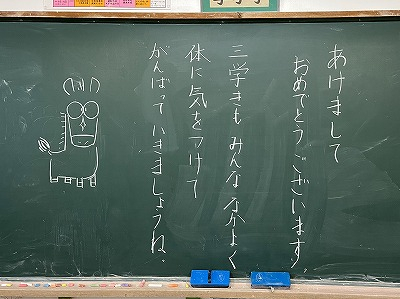 あけまして
おめでとうございます。
三学きも みんな なかよく
体に気をつけて
がんばっていきましょうね。